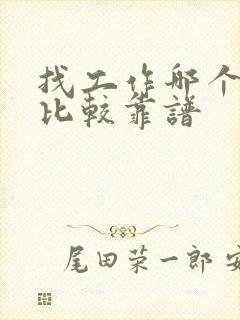 找工作哪个
比较靠譜
尾田荣一郎 安